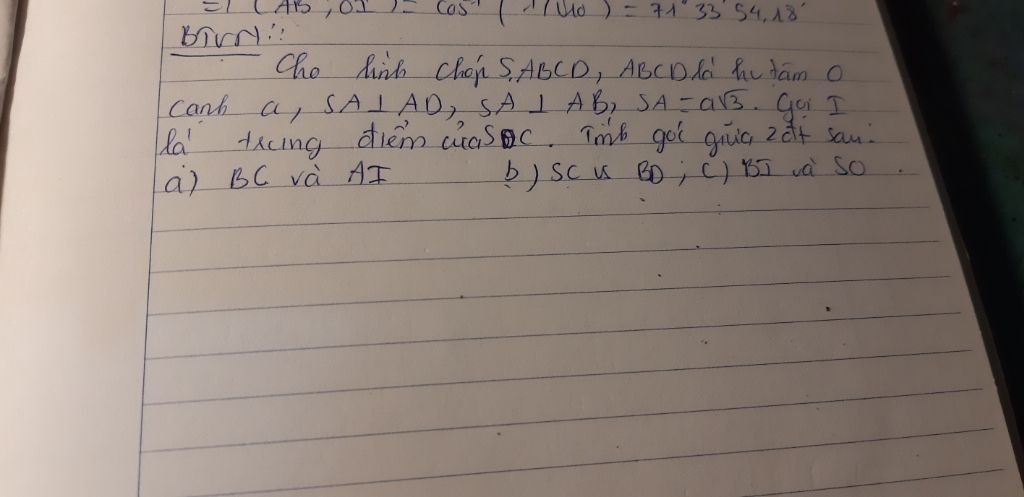 =) (AB, OI) = cos⁻¹ (1/√10) = 71° 33' 54,18"
BTVN !!
Cho hình chóp S.ABCD, ABCD là hv tâm O
cạnh a, SA ⊥ AD, SA ⊥ AB, SA = a√3. Gọi I
là trung điểm của SC. Tính góc giữa 2 đt sau:
a) BC và AI b) SC vs BD ; c) BI và SO .